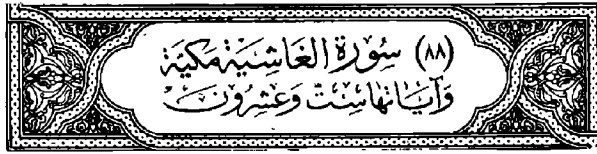 (٨٨) سُورَةُ الغَاشِيَةِ مَكيَّة
وَآيَاتُهَا سِتٌّ وَعِشْرُونَ